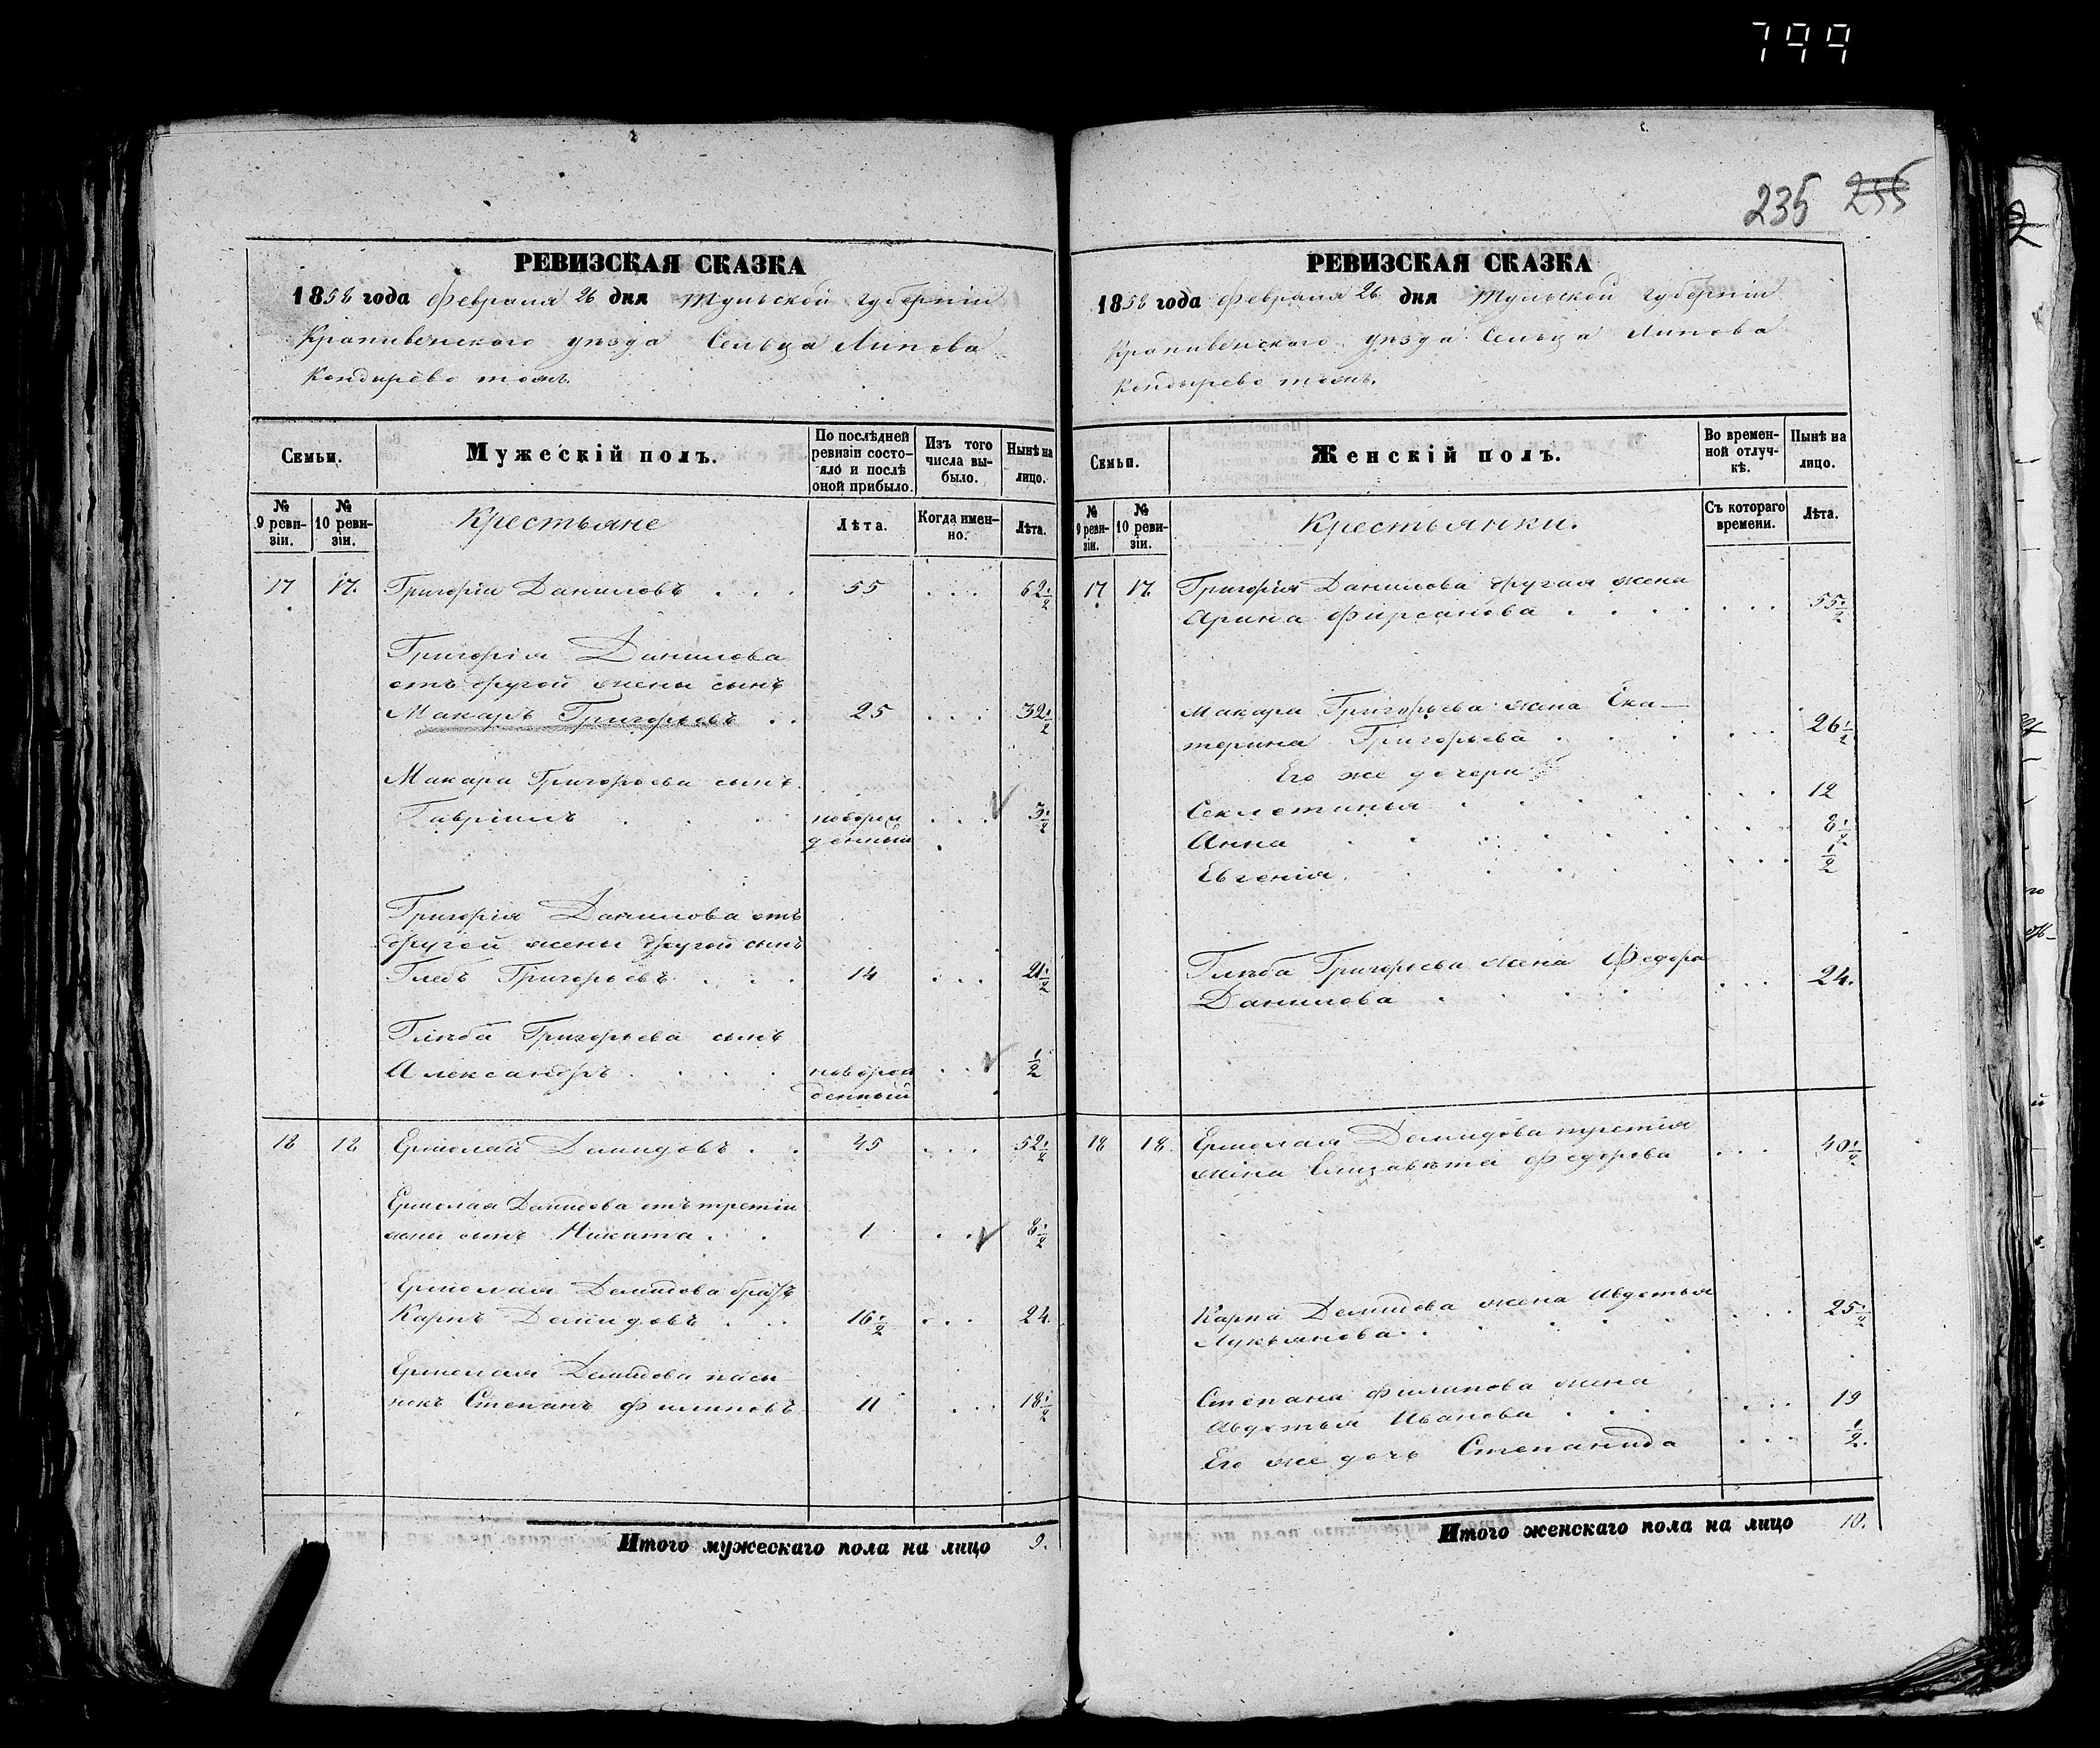 799
235 255
РЕВИЗСКАЯ СКАЗКА
1858 года Февраля 26 дня Тульской губерніи
Крапивенского уезда Сельца Липова
Кондырево тожъ.
Семьи.
Мужескій полъ.
По послѣдней ревизіи состояло и послѣ оной прибыло.
Изъ того числа выбыло.
Нынѣ на лицо.
№ 9 ревизіи.
№ 10 ревизіи.
Крестьяне
Лѣта.
Когда именно.
Лѣта.
17 17. Григорій Даниловъ . . . 55 . . . 62½
Григорія Данилова
отъ другой жены сынъ
Макаръ Григорьевъ . . 25 . . . 32½
Макара Григорьева сынъ
Гавріилъ . . . новорож . . . 3½
денный
Григорія Данилова отъ
другой жены другой сынъ
Глебъ Григорьевъ . . . 14 . . . 21½
Глѣба Григорьева сынъ
Александръ . . . . новорож . . ½
денный
18 18 Ермолай Демидовъ . . 45 . . . 52½
Ермолая Демидова отъ третіи
жены сынъ Никита . . 1 . . 8½
Ермолая Демидова братъ
Карпъ Демидовъ . . . 16½ . . . 24.
Ермолая Демидова пасы
нокъ Степанъ Филиповъ 11 . . . 18½
Итого мужескаго пола на лицо 9.
РЕВИЗСКАЯ СКАЗКА
1858 года Февраля 26 дня Тульской губерніи
Крапивенского уезда Сельца Липова
Кондырево тожъ.
Семьи.
Женскій полъ.
Во временной отлучкѣ.
Нынѣ на лицо.
№ 9 ревизіи.
№ 10 ревизіи.
Крестьянки.
Съ котораго времени.
Лѣта.
17 17. Григорія Данилова другая жена
Арина Фирсанова . . . . . . . 55½
Макара Григорьева жена Ека—
терина Григорьева . . . . . . 26½
Его же дочери
Секлетинья . . . . . . . 12
Анна . . . . . . . . 8½
Евгенія . . . . . . . ½
Глѣба Григорьева жена Федора
Данилова . . . . . . . . 24.
18 18. Ермолая Демидова третія
жена Елизавѣта Федорова . . . 40½
Карпа Демидова жена Авдотья
Лукьянова . . . . . . . . 25½
Степана Филипова жена
Авдотья Иванова . . . . . . 19
Его же дочь Степанида . . . ½.
Итого женскаго пола на лицо 10.